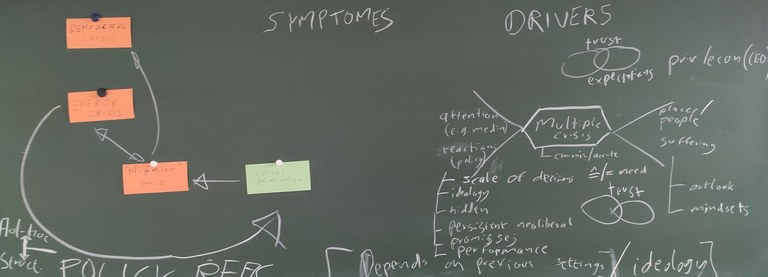 SYMPTOMES
DRIVERS
DEMOCRATIC
CRISIS
ENERGY
CRISIS
"Migration"
crisis
trust
expectations
attention
(e.g. media)
reactions
(policy)
Multiple
crisis
chronic/acute
places/
people
suffering
scale of decisions ≙/≠ need
ideology
hidden
persistent neoliberal
promisses
performance
trust
outlook
mindsets
Ad-hoc
Struct.
POLICY
[Depends on previous settings/ideology]